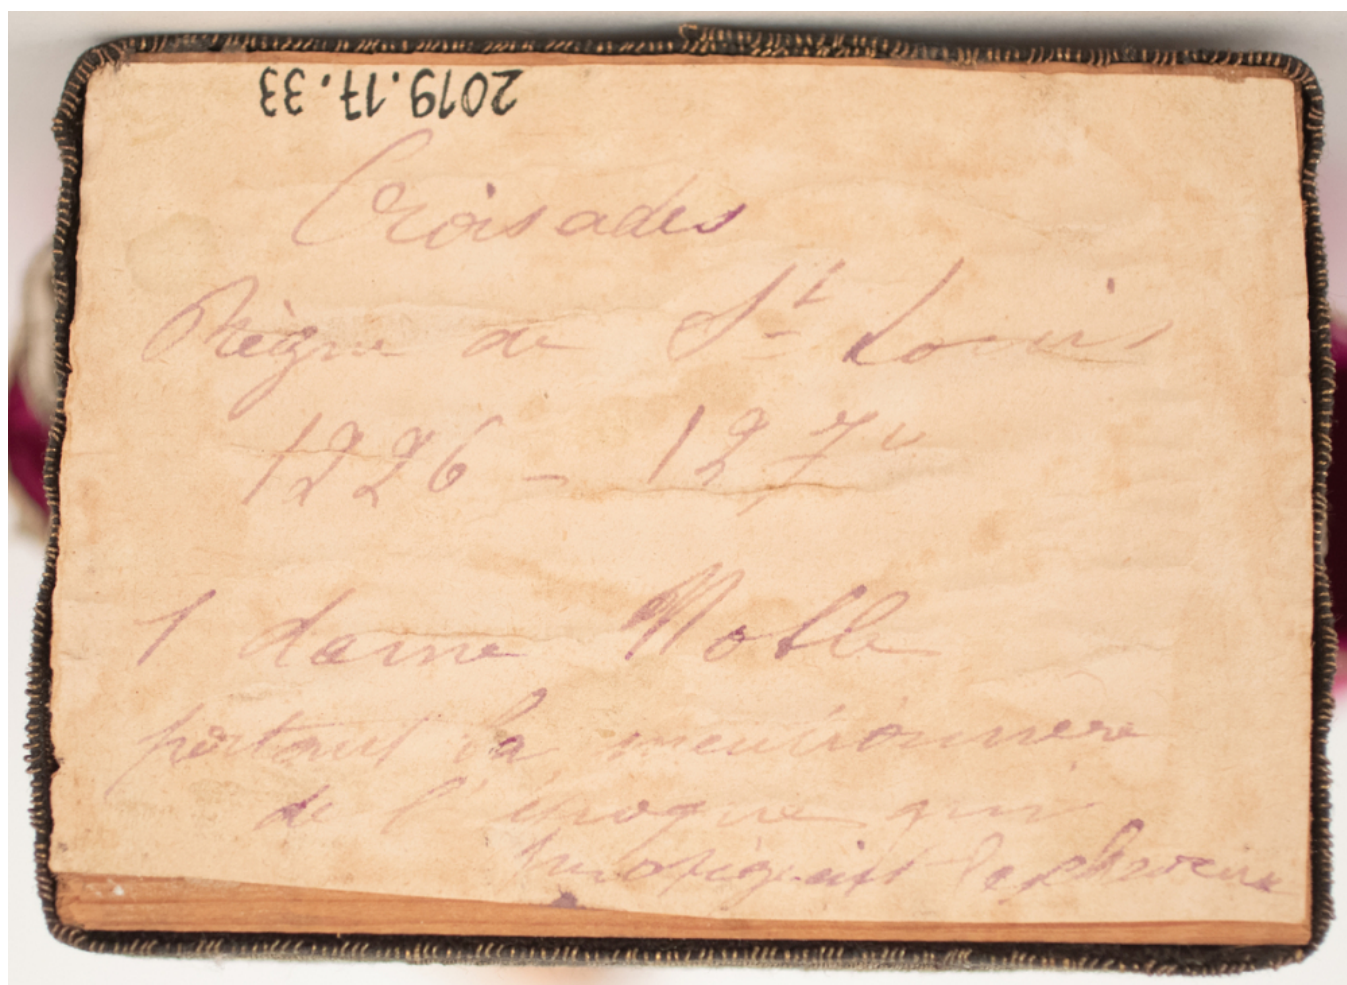 2019.17.33
Croisades
Règne de St Louis
1226 - 1270
1 dame Noble
portant la mentonnière
de l'époque qui